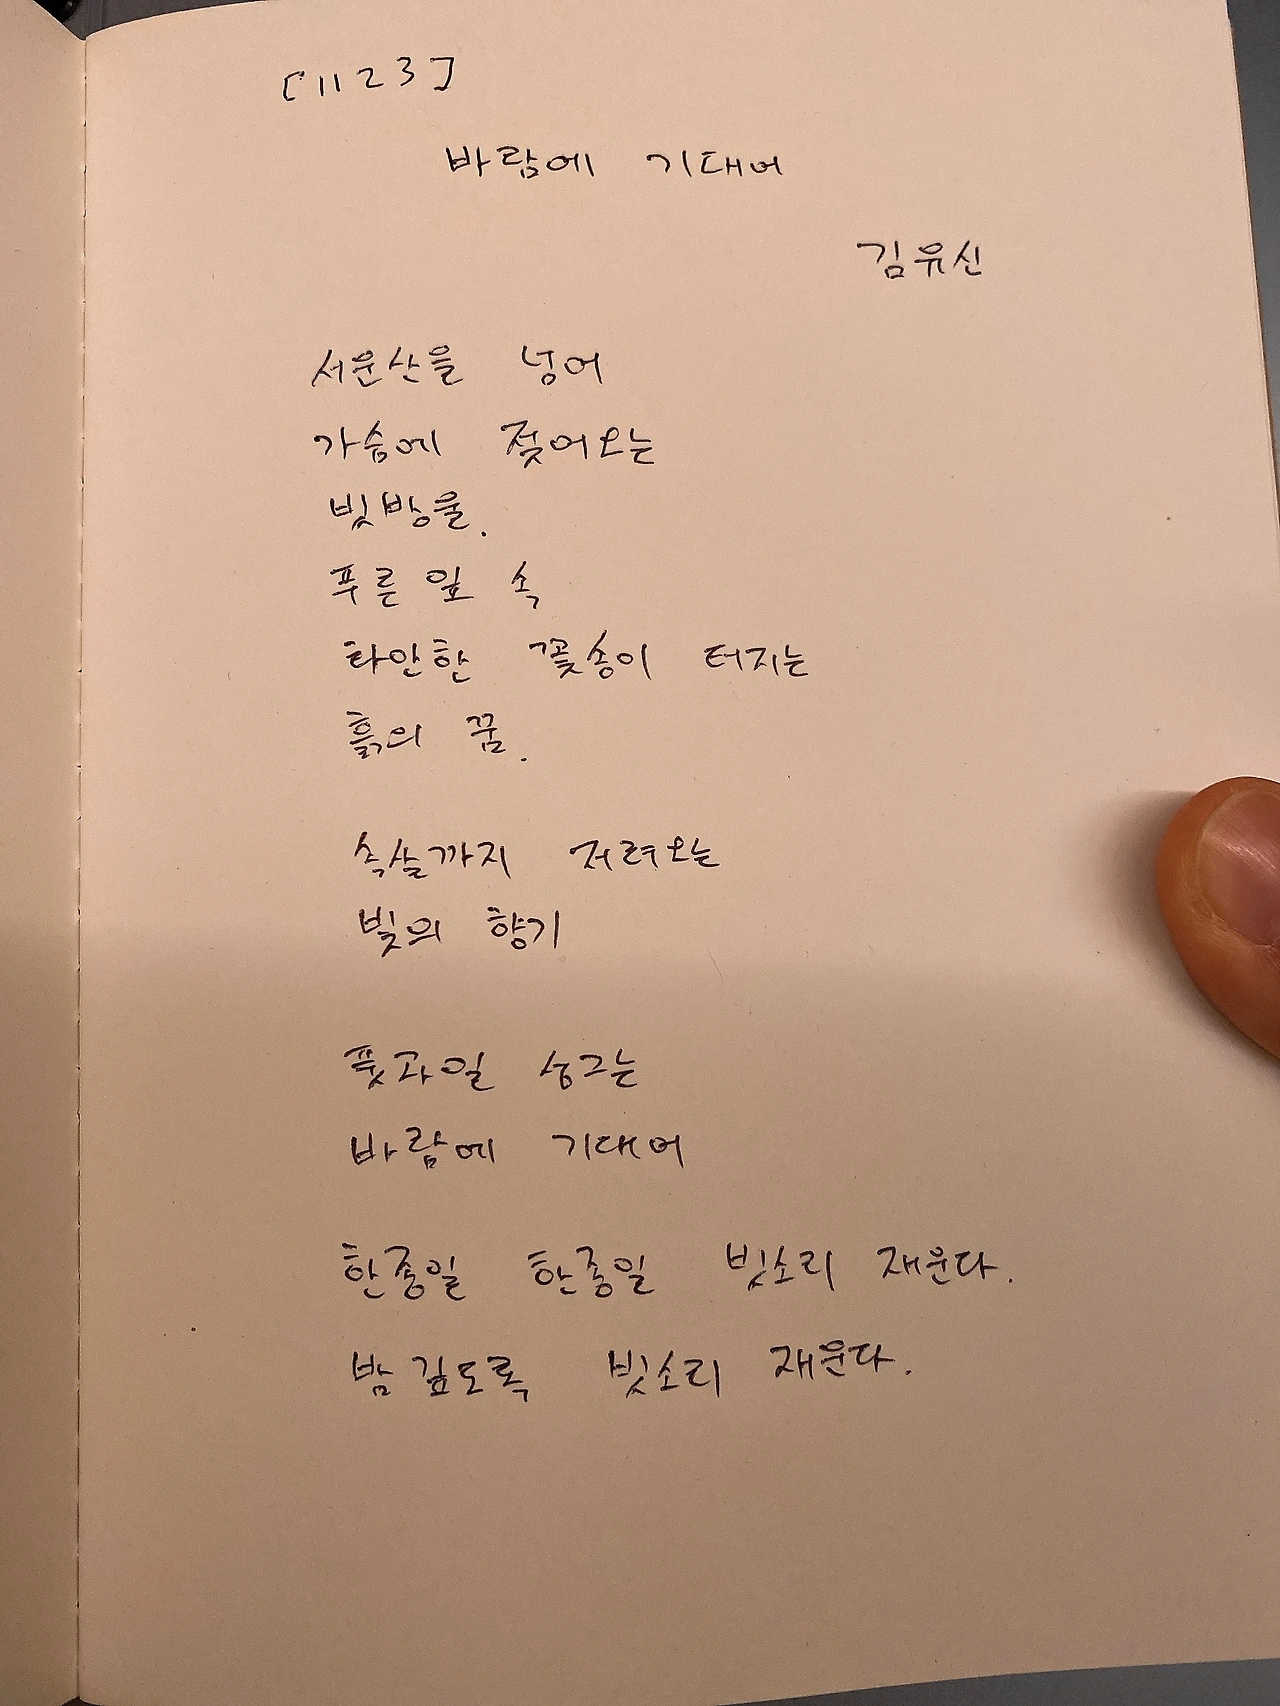 [1123]
바람에 기대어
김유신
서운산을 넘어
가슴에 젖어오는
빗방울.
푸른 잎 속
타안한 꽃송이 터지는
흙의 꿈.
속살까지 저려오는
빛의 향기
풋과일 싱그는
바람에 기대어
한종일 한종일 빗소리 재운다.
밤 깊도록 빗소리 재운다.